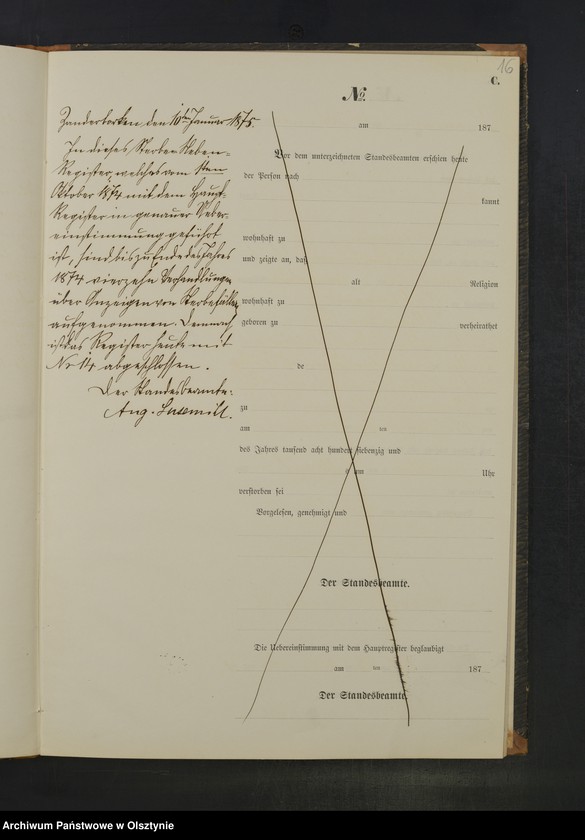 16
C.
No.
Zanderborken den 10ten Januar 1875.
In dieses Sterbe-Neben-
Register, welches vom 1sten
Oktober 1874 mit dem Haupt-
Register in genauer Ueber-
einstimmung geführt
ist, sind bis zu Ende des Jahres
1874 vierzehn Verhandlungen
über Anzeigen von Sterbefällen
aufgenommen. Demnach
ist das Register heute mit
No 14 abgeschlossen.
Der Standesbeamte.
Aug.
am 187
Vor dem unterzeichneten Standesbeamten erschien heute
der Person nach
kannt
wohnhaft zu
und zeigte an, daß
alt Religion
wohnhaft zu
geboren zu verheirathet
de
zu
am ten
des Jahres tausend acht hundert siebenzig und
um Uhr
verstorben sei
Vorgelesen, genehmigt und
Der Standesbeamte.
Die Uebereinstimmung mit dem Hauptregister beglaubigt
am ten 187
Der Standesbeamte.
Archiwum Państwowe w Olsztynie